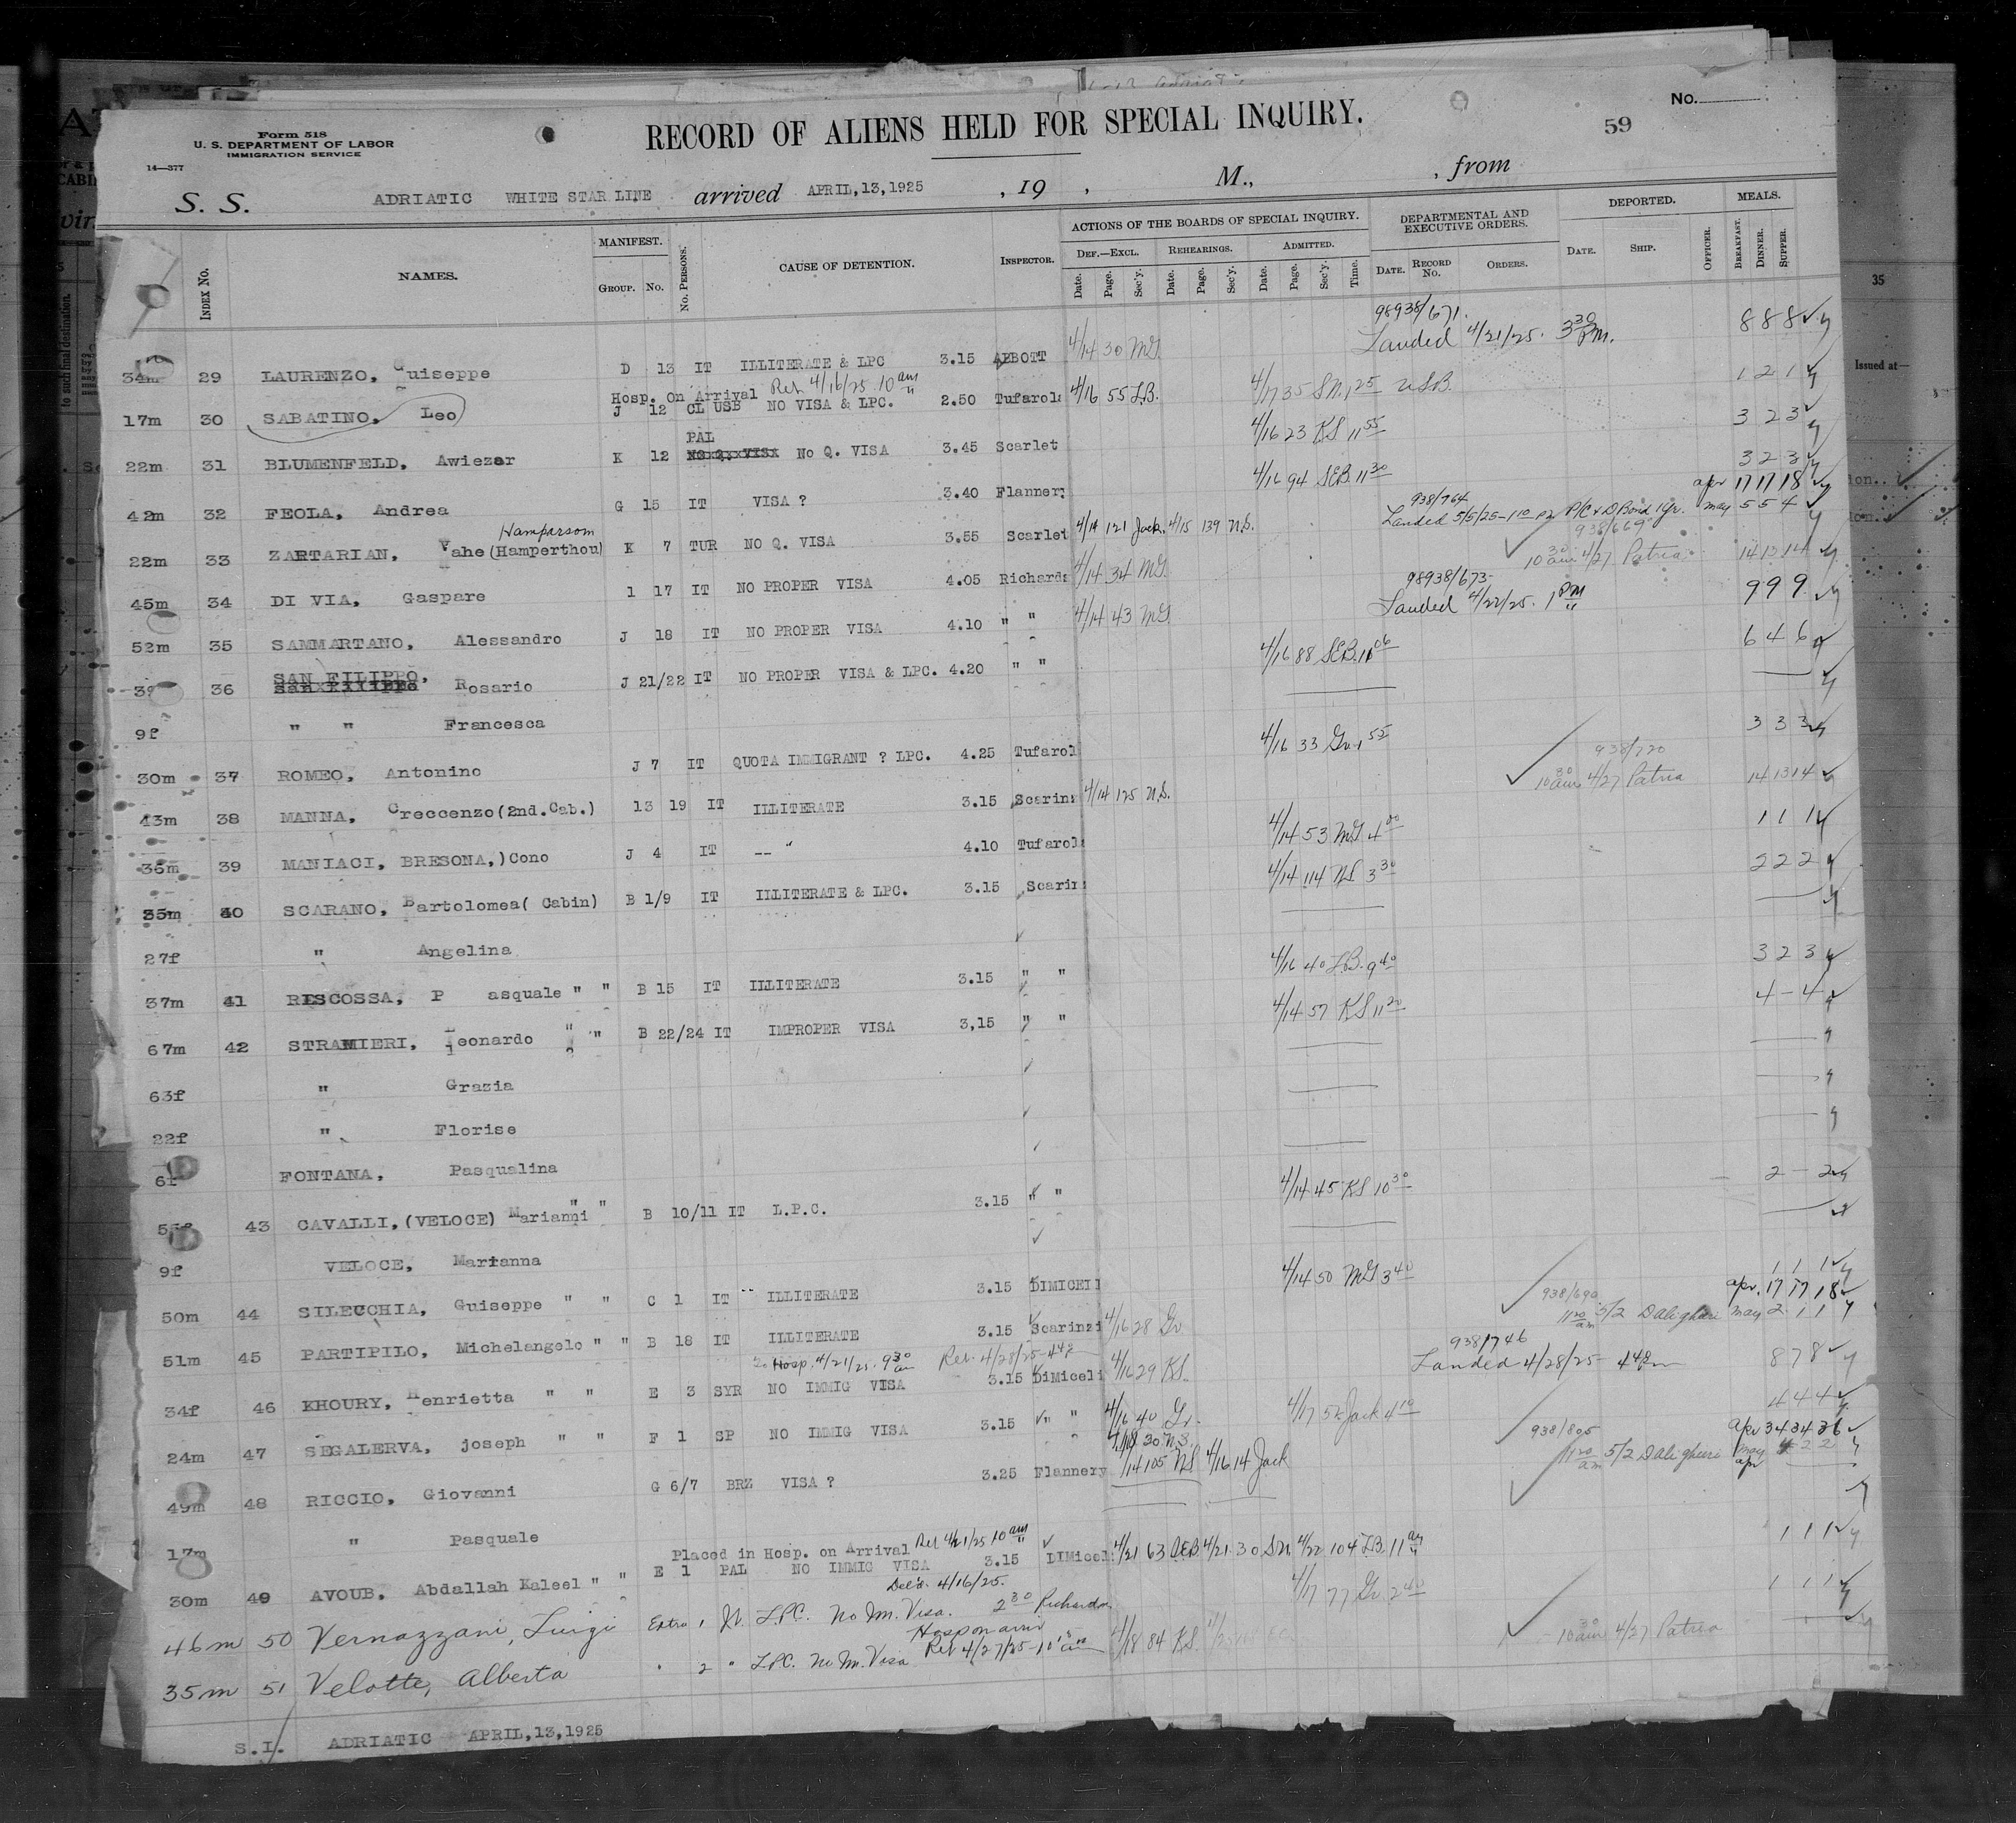 No.
59
Form 518
U. S. DEPARTMENT OF LABOR
IMMIGRATION SERVICE
14—377
RECORD OF ALIENS HELD FOR SPECIAL INQUIRY.
S. S. ADRIATIC WHITE STAR LINE arrived APRIL,13,1925 , 19 , M., , from
INDEX No. NAMES. MANIFEST. GROUP. No. No. PERSONS. CAUSE OF DETENTION. INSPECTOR. ACTIONS OF THE BOARDS OF SPECIAL INQUIRY. DEPARTMENTAL AND EXECUTIVE ORDERS. DEPORTED. MEALS.
DEF.—EXCL. REHEARINGS. ADMITTED. DATE. RECORD No. ORDERS. DATE. SHIP. OFFICER. BREAKFAST. DINNER. SUPPER.
Date. Page. Sec'y. Date. Page. Sec'y. Date. Page. Sec'y. Time.
98938/671.
34m 29 LAURENZO, Guiseppe D 13 IT ILLITERATE & LPC 3.15 ABBOTT 4/14 30 MG Landed 4/21/25. 3 30 PM. 8 8 8
Hosp. On Arrival Ret 4/16/25 10 am
17m 30 SABATINO, Leo J 12 CL USB NO VISA & LPC. 2.50 Tufarola 4/16 55 L.B. 4/17 35 SN. 1 25 USB. 1 2 1
PAL
22m 31 BLUMENFELD, Awiezer K 12 No Q. VISA 3.45 Scarlet 4/16 23 KS 11 55 3 2 3
42m 32 FEOLA, Andrea G 15 IT VISA ? 3.40 Flannery 4/16 94 SEB. 11 30 3 2 3
Hamparsom 938/764 apr 17 17 18
22m 33 ZARTARIAN, Vahe (Hamperthou) K 7 TUR NO Q. VISA 3.55 Scarlet 4/14 121 Jack. 4/15 139 N.S. Landed 5/5/25-1 10 P/C & D Bond 1 yr. may 5 5 4
938/669
45m 34 DI VIA, Gaspare 1 17 IT NO PROPER VISA 4.05 Richards 4/14 34 MG. 10 30 am 4/27 Patria 14 13 14
98938/673-
52m 35 SAMMARTANO, Alessandro J 18 IT NO PROPER VISA 4.10 " " 4/14 43 MG Landed 4/22/25. 1 PM 9 9 9
SAN FILIPPO,
39 36 Rosario J 21/22 IT NO PROPER VISA & LPC. 4.20 " " 4/16 88 SEB. 11 06 6 4 6
9f " " Francesca
30m 37 ROMEO, Antonino J 7 IT QUOTA IMMIGRANT ? LPC. 4.25 Tufarol 4/16 33 Gr. 1 55 3 3 3
938/720
43m 38 MANNA, Creccenzo(2nd.Cab.) 13 19 IT ILLITERATE 3.15 Scarinz 4/14 125 N.S. 10 30 am 4/27 Patria 14 13 14
36m 39 MANIACI, BRESONA,)Cono J 4 IT -- " 4.10 Tufarola 4/14 53 MG 4 00 1 1 1
35m 40 SCARANO, Bartolomea( Cabin) B 1/9 IT ILLITERATE & LPC. 3.15 Scarin 4/14 114 NS 3 30 2 2 2
27f " Angelina
37m 41 RISCOSSA, P asquale " " B 15 IT ILLITERATE 3.15 " " 4/16 40 L.B. 9 40 3 2 3
67m 42 STRAMIERI, Leonardo " " B 22/24 IT IMPROPER VISA 3,15 " " 4/14 57 KS 11 20 4 - 4
63f " Grazia
22f " Florise
6f FONTANA, Pasqualina
55f 43 CAVALLI,(VELOCE) Marianni " " B 10/11 IT L.P.C. 3.15 " " 4/14 45 KS 10 30 2 - 2
9f VELOCE, Marianna
50m 44 SILECCHIA, Guiseppe " " C 1 IT ILLITERATE 3.15 DIMICELI 4/14 50 MG 3 40 1 1 1
938/690 apr. 17 17 18
51m 45 PARTIPILO, Michelangelo " " B 18 IT ILLITERATE 3.15 Scarinzi 4/16 28 Gr 11 20 am 5/2 D Alighieri may 2 1 1
To Hosp. 4/21/25. 9 30 am Ret. 4/28/25- 938/746
34f 46 KHOURY, Henrietta " " E 3 SYR NO IMMIG VISA 3.15 DiMiceli 4/16 29 KS. Landed 4/28/25- 8 7 8
24m 47 SEGALERVA, joseph " " F 1 SP NO IMMIG VISA 3.15 " " 4/16 40 Gr. 4/17 52 Jack 4 10 4 4 4
30 N.S. 938/805 Apr 34 34 36
49m 48 RICCIO, Giovanni G 6/7 BRZ VISA ? 3.25 Flannery 4/14 105 NS 4/16 14 Jack 11 20 am 5/2 D Alighieri may 2 2
17m " Pasquale
Placed in Hosp. on Arrival Ret 4/21/25 10 am
30m 49 AVOUB, Abdallah Kaleel " " E 1 PAL NO IMMIG VISA 3.15 DIMicel 4/21 63 SEB. 4/21 30 SN 4/22 104 LB. 11 am 1 1 1
Dec'd. 4/16/25.
46m 50 Vernazzani, Luigi Extra 1 It. LPC. No Im. Visa. 2 30 Richards 4/17 77 Gr. 2 40 1 1 1
Hosp on arriv
Ret 4/27/25-10 15 am
35m 51 Velotte, Alberto " 2 " LPC. No Im. Visa 4/18 84 KS. 10 30 am 4/27 Patria
S.I. ADRIATIC APRIL,13,1925
35
Issued at—